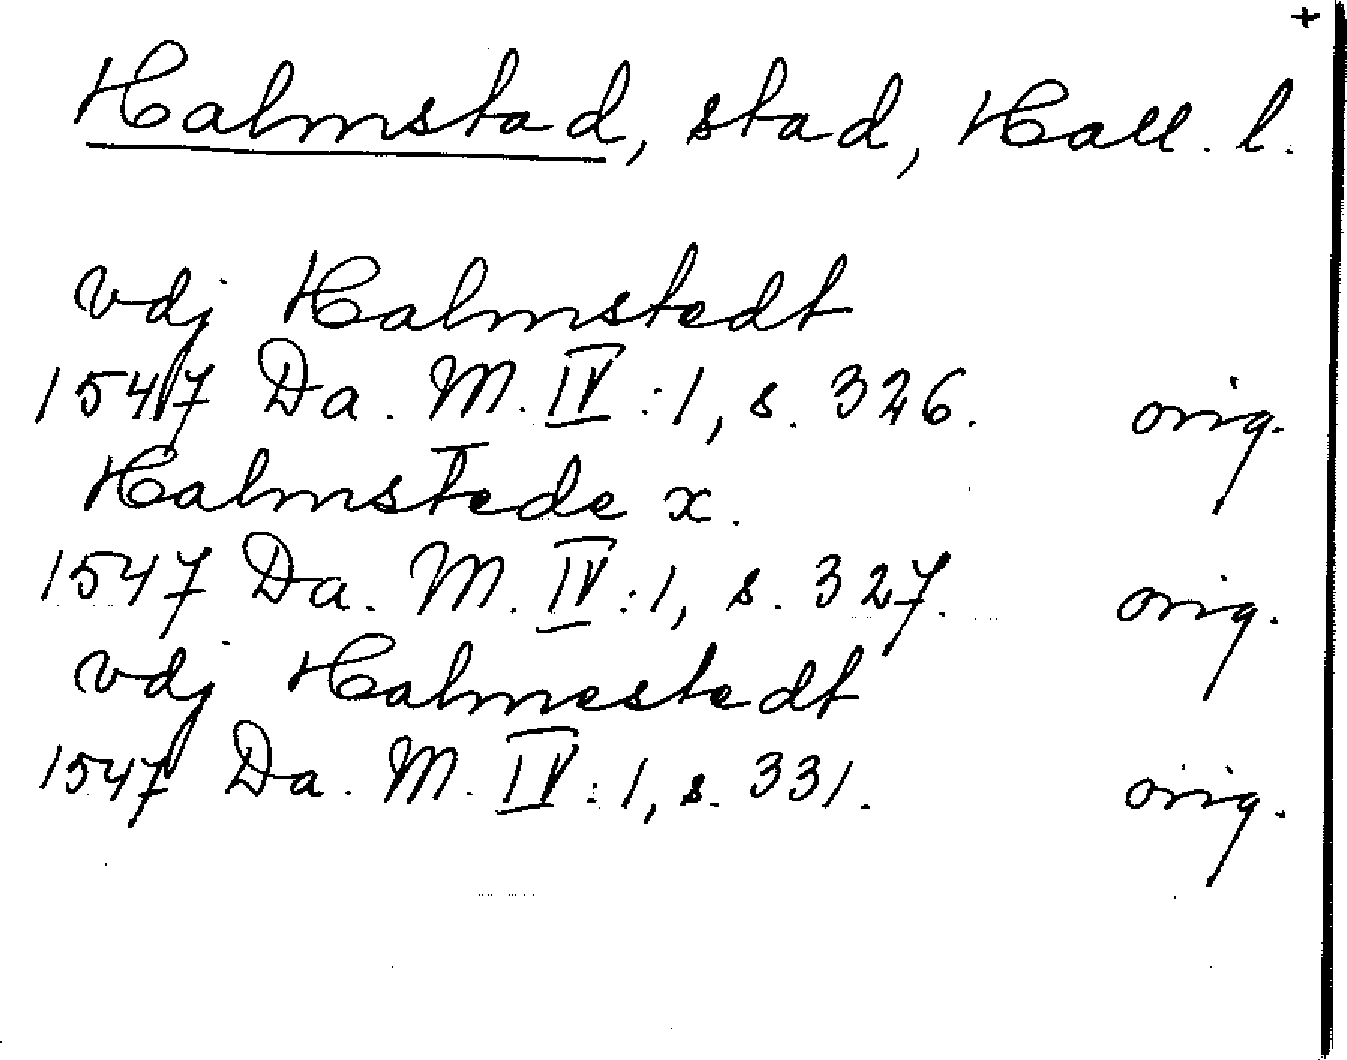 +
Halmstad, stad, Hall. l.
vdj Halmstedt
1547 Da. M. IV:1, s. 326. orig.
Halmstede x.
1547 Da. M. IV:1, s. 327. orig.
vdj Halmestedt
1547 Da. M. IV:1, s. 331. orig.